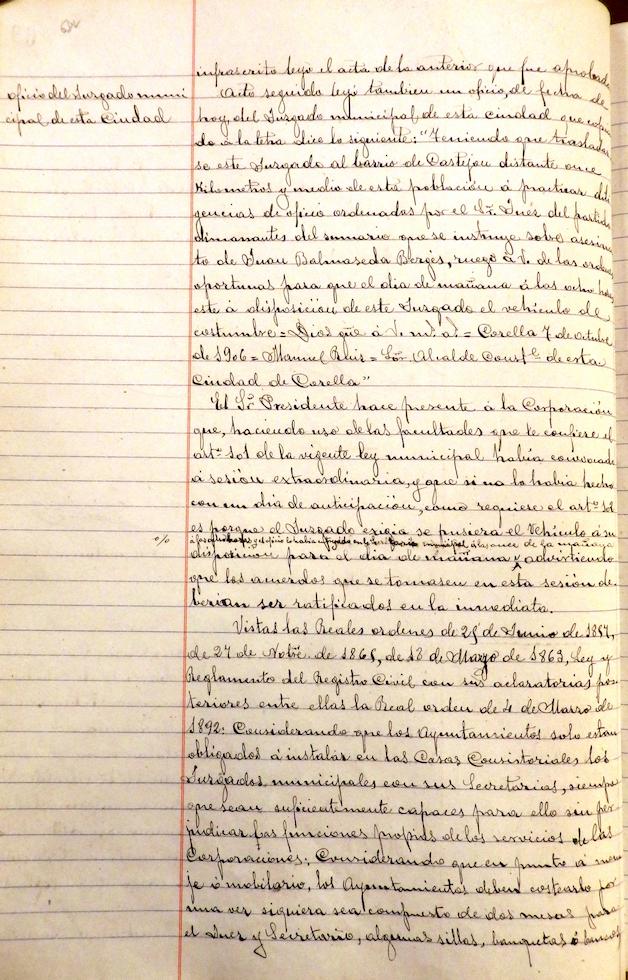 infrascrito leyó el acta de la anterior que fue aprobada
oficio del Juzgado muni
cipal de esta Ciudad
Acto seguido leyó tambien un oficio, de fecha de
hoy, del Juzgado municipal, de esta ciudad que copia
do á la letra dice lo siguiente: "Teniendo que trasladar
se este Juzgado al barrio de Castejon distante once
Kilometros y medio de esta poblacion á practicar dili
gencias de oficio ordenadas por el Sr. Juez del partido
dimanantes del sumario que se instruye sobre asesina
to de Juan Balmaseda Berges, ruego á V. de las ordenes
oportunas para que el dia de mañana á las ocho horas
esté á disposicion de este Juzgado el vehículo de
costumbre = Dios gue á V. ms. as. = Corella 7 de Octubre
de 1906 = Manuel Ruiz = Sor. Alcalde Constl. de esta
Ciudad de Corella"
El Sr. Presidente hace presente á la Corporacion
que, haciendo uso de las facultades que le confiere el
arto. 101 de la vigente ley municipal habia convocado
á sesion extraordinaria, y que si no lo habia hecho
con un dia de anticipacion, como requiere el arto. 102
es porque el Juzgado exigia se pusiera el Vehículo á su
á las ocho horas y el oficio lo habia en la municipal á las once de la mañana
disposicion para el dia de mañana y advirtiendo
que los acuerdos que se tomasen en esta sesion de-
berian ser ratificados en la inmediata.
Vistas las Reales ordenes de de Junio de
de 27 de Novbre. de de 18 de Mayo de 1863, Ley y
Reglamento del Registro Civil con sus aclaratorias pos
teriores entre ellas la Real orden de 4 de Marzo de
1892: Considerando que los Ayuntamientos solo estan
obligados á instalar en las Casas Consistoriales los
Juzgados municipales con sus Secretarias, siempre
que sean suficientemente capaces para ello sin per
judicar las funciones propias de los servicios de las
Corporaciones; Considerando que en punto á mena
je ó mobilario, los Ayuntamientos deben costearlo por
una vez siquiera sea compuesto de dos mesas para
el Juez y Secretario, algunas sillas, banquetas ó bancos